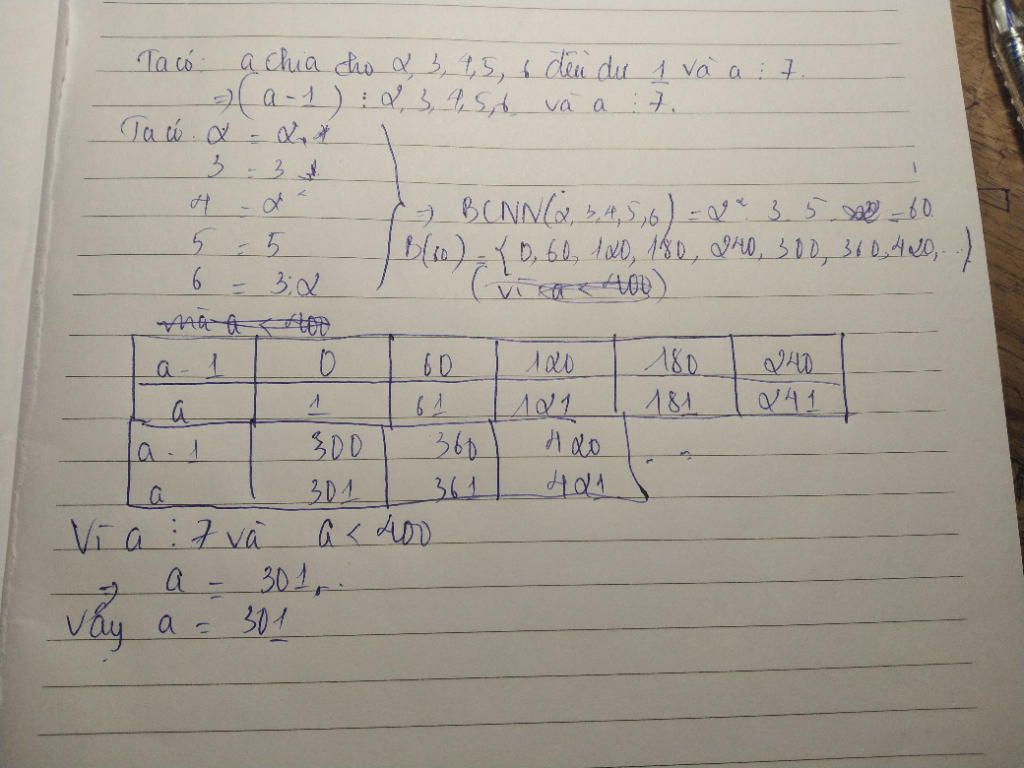 Ta có: a chia cho 2, 3, 4, 5, 6 đều dư 1 và a ⋮ 7.
⇒ (a - 1) ⋮ 2, 3, 4, 5, 6 và a ⋮ 7.
Ta có: 2 = 2.
3 = 3
4 = 2²
5 = 5
6 = 3.2
⇒ BCNN(2, 3, 4, 5, 6) = 2². 3. 5 = 60.
B(60) = { 0, 60, 120, 180, 240, 300, 360, 420, ...}
(vì a < 400)
mà a < 400
a - 1 0 60 120 180 240
a 1 61 121 181 241
a - 1 300 360 420
a 301 361 421
Vì a ⋮ 7 và a < 400
⇒ a = 301
Vậy a = 301